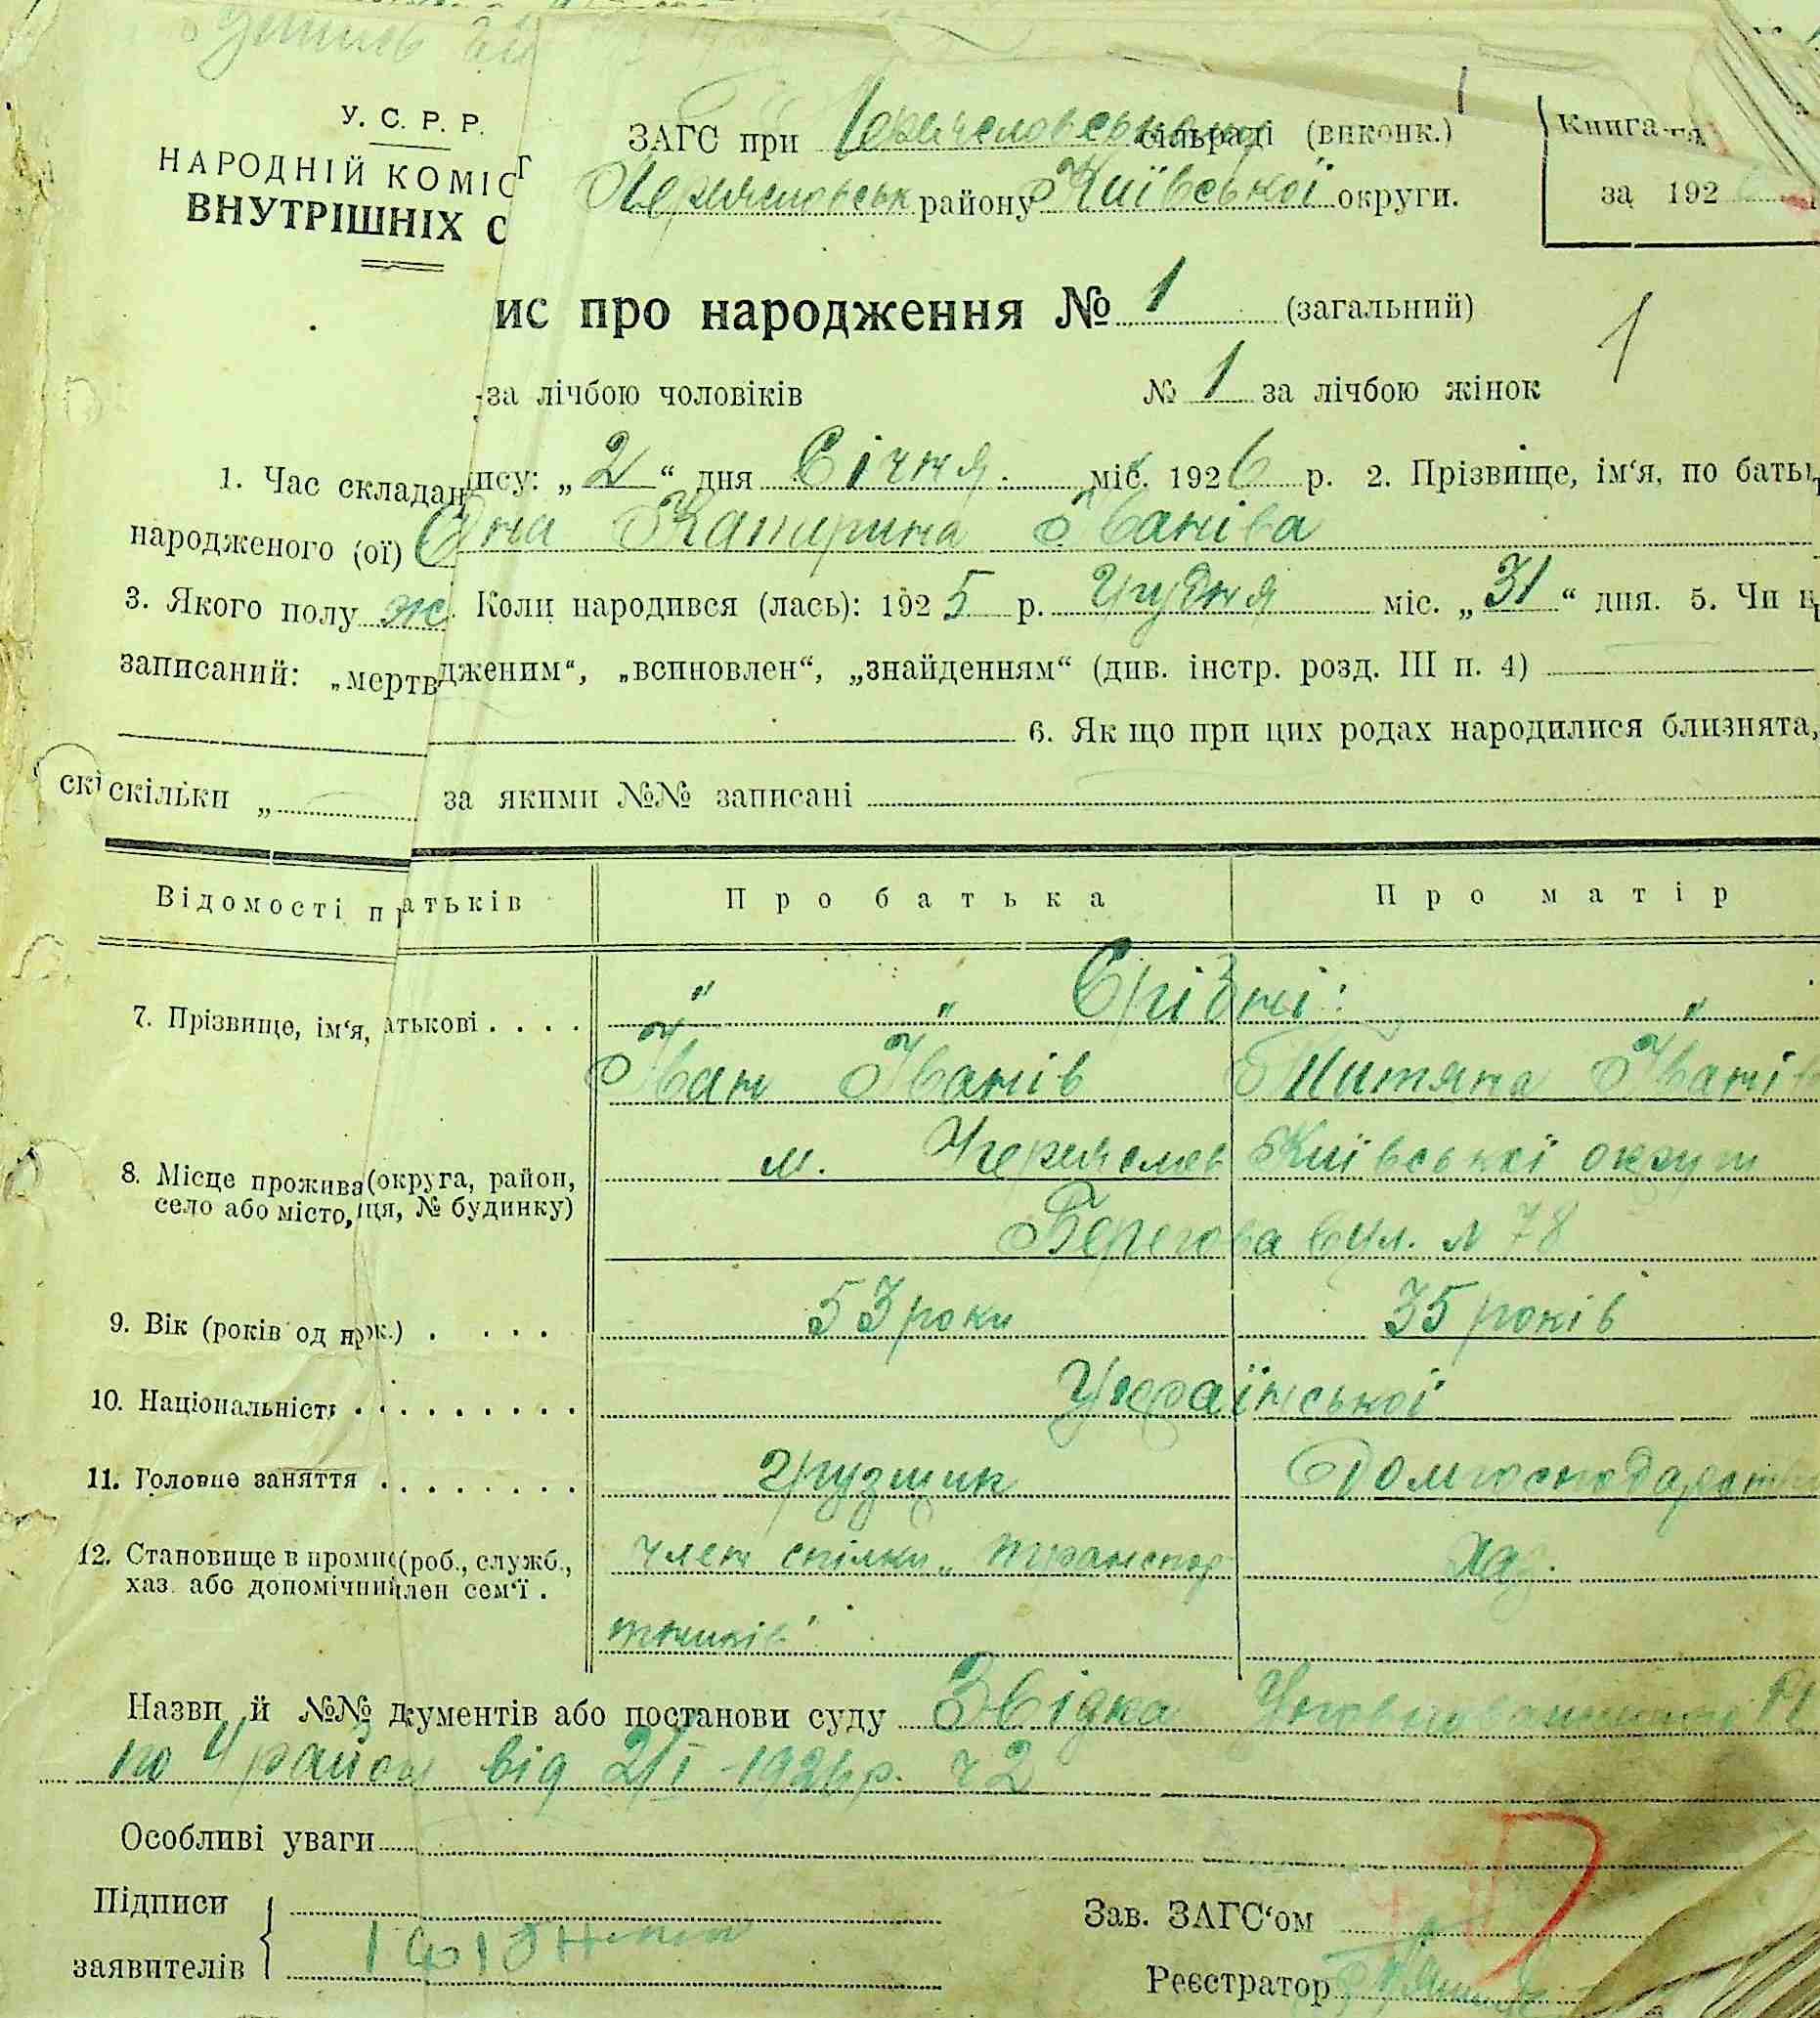 У. С. Р. Р.
НАРОДНІЙ КОМІС
ВНУТРІШНІХ С
ЗАГС при сільраді (виконк.)
району Київської округи.
Книга
за 192
ис про народження № 1 (загальний)
1
за лічбою чоловіків № 1 за лічбою жінок
1. Час складан ису: „ 2 “ дня Січня міс. 1926 р. 2. Прізвище, ім‘я, по батьк
народженого (ої) Катирина Іваніва
3. Якого полу ж Коли народився (лась): 1925 р. Грудня міс. „ 31 “ дня. 5. Чи
записаний: „мертв дженим“, „всиновлен“, „знайденням“ (див. інстр. розд. III п. 4)
6. Як що при цих родах народилися близнята,
скі скільки „ за якими №№ записані
Відомості п атьків Про батька Про матір
7. Прізвище, ім‘я, атькові . . . . „ „ Єрідні: „
Іван Іванів Титяна Іванів
8. Місце прожива (округа, район, м. Переяслав Київські округи
село або місто, ця, № будинку) Берегова вул. № 78
9. Вік (років од н к.) . . . . 53 роки 35 років
10. Національніст . . . . . . . . . Української
11. Головне заняття . . . . . . . . Грузщик Домгосподарст
12. Становище в промис (роб., служб., член спілки „транспор хаз.
хаз. або допомічний лен сем‘ї .
тників“
Назви й №№ документів або постанови суду Звідка
по 4 району від 2/I - 1926 р. ч 2
Особливі уваги
Підписи
заявителів
Зав. ЗАГС‘ом
Реєстратор